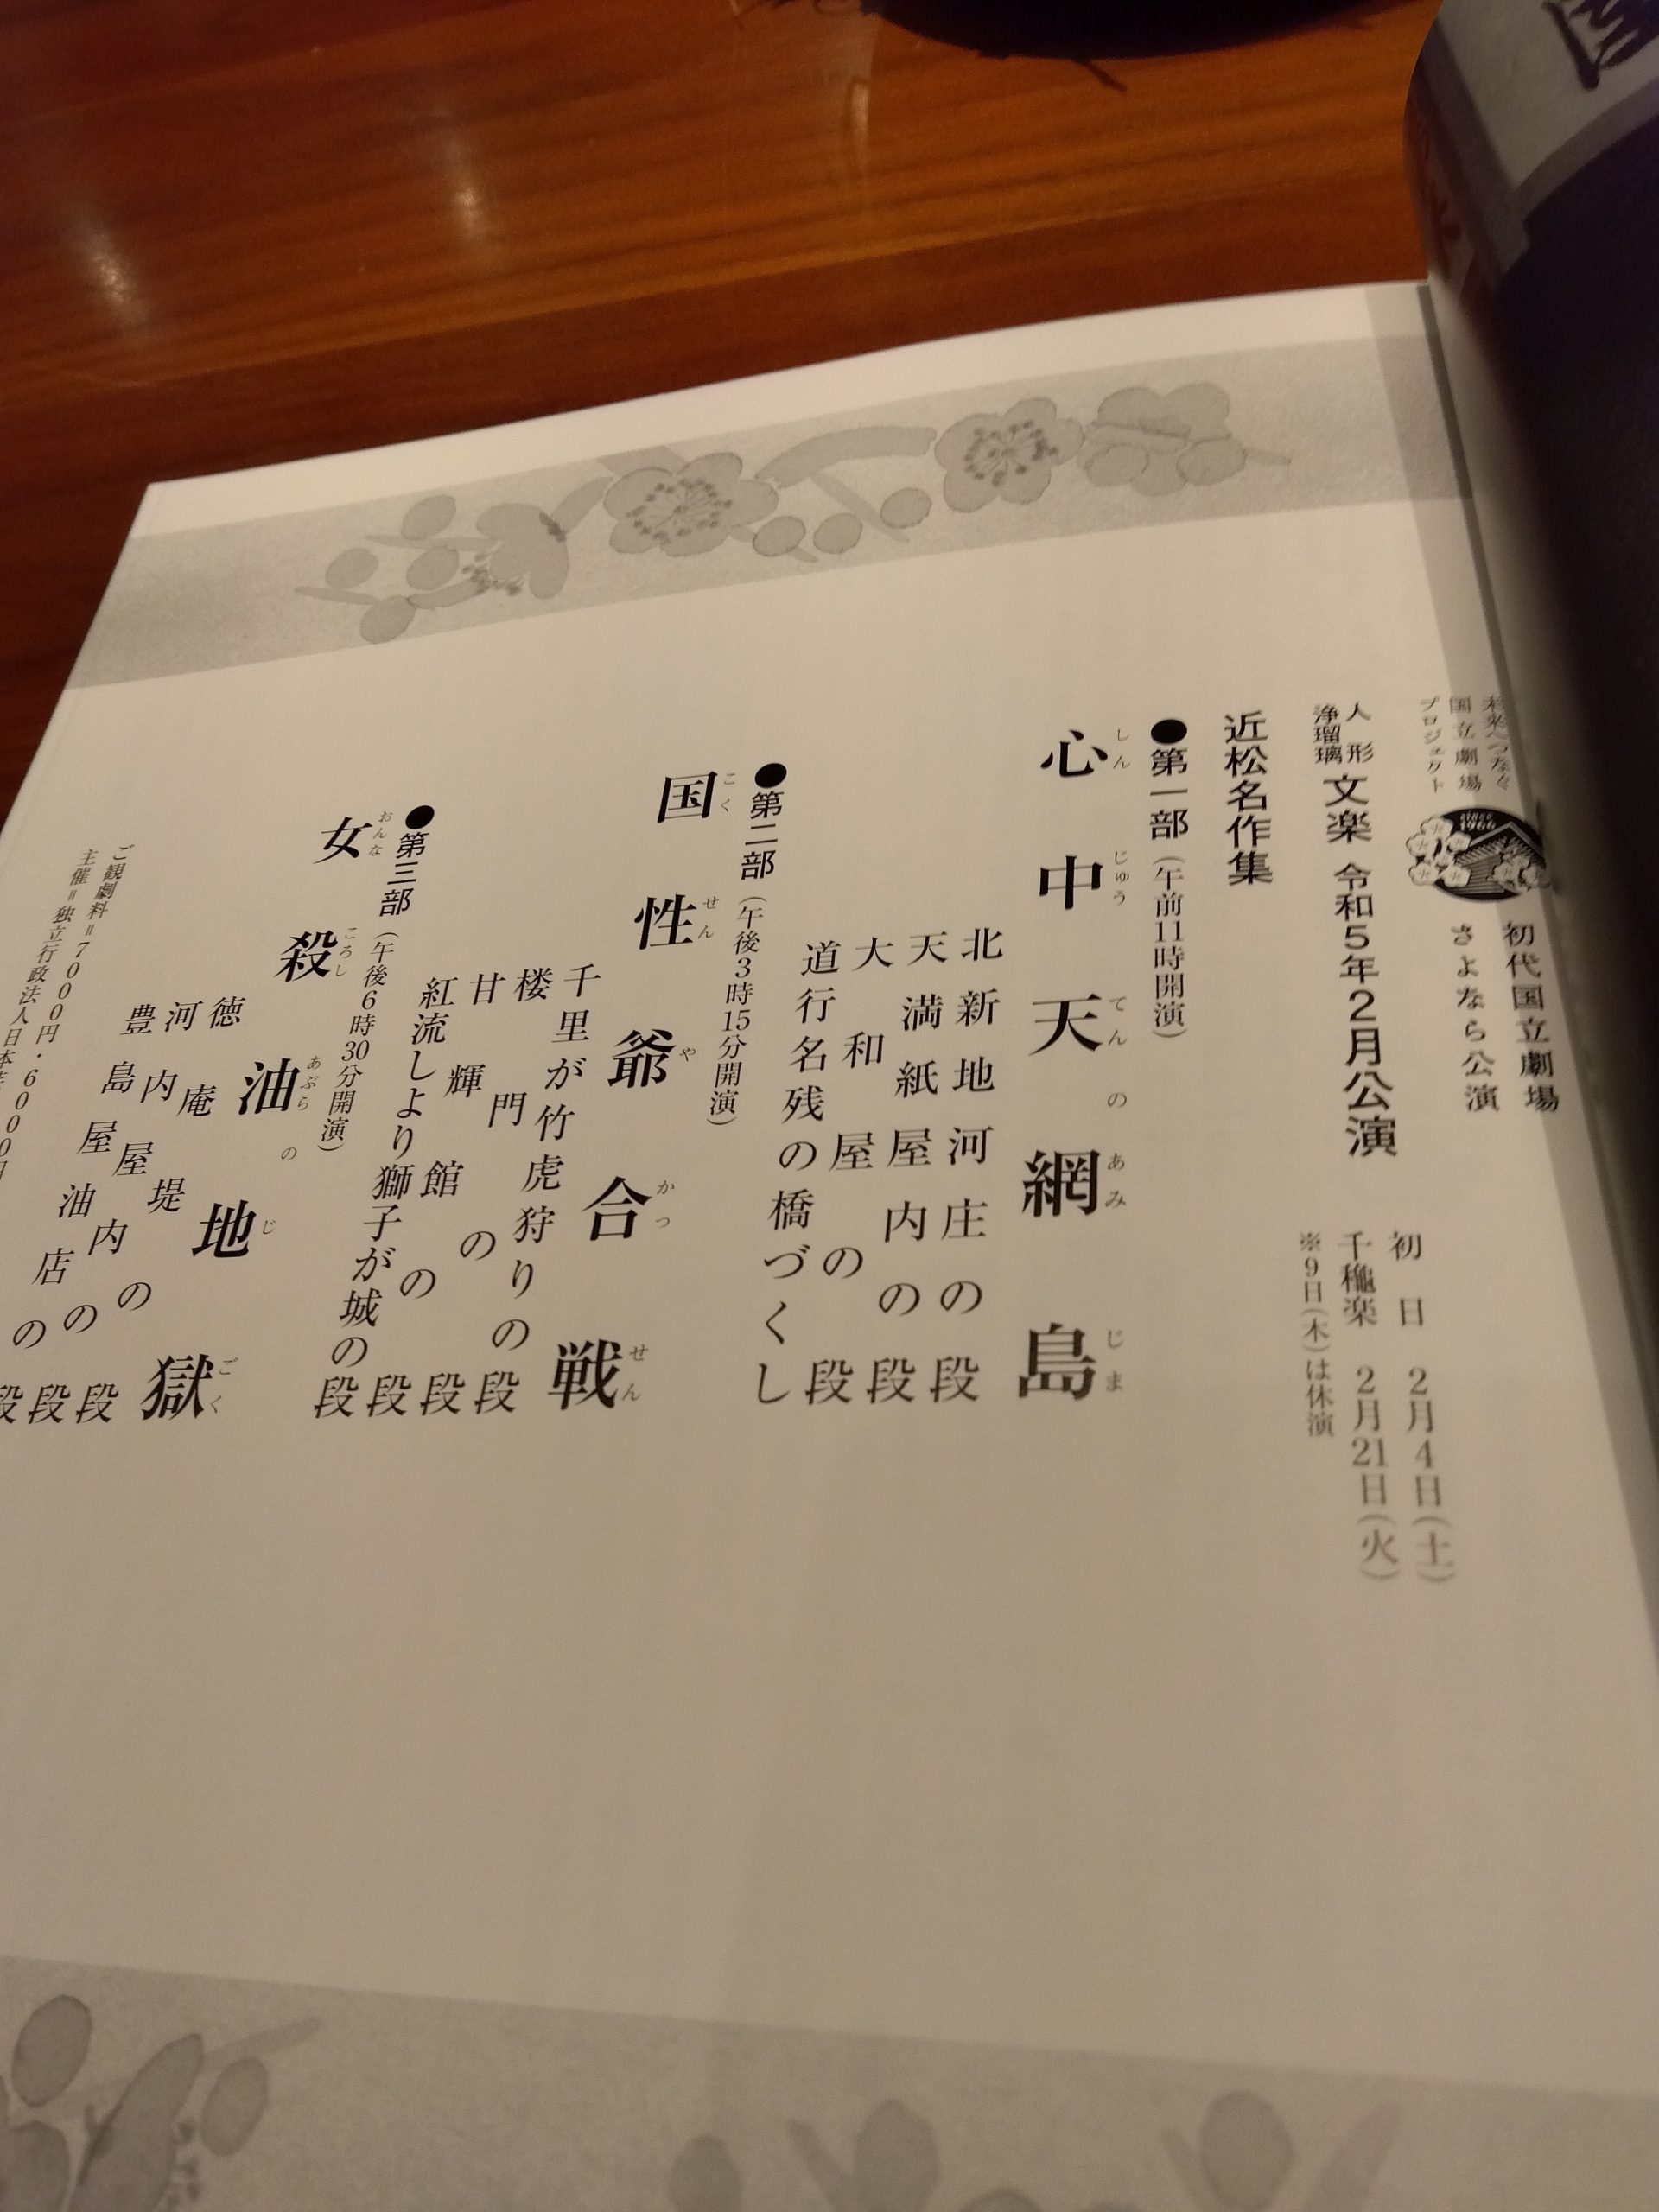 未来へつなぐ
国立劇場
プロジェクト
SINCE
1966
初代国立劇場
さよなら公演
人形
浄瑠璃
文楽 令和5年2月公演
初日 2月4日(土)
千穐楽 2月21日(火)
※9日(木)は休演
近松名作集
●第一部(午前11時開演)
しんじゅうてんのあみじま
心中天網島
北新地河庄の段
天満紙屋内の段
大和屋の段
道行名残の橋づくし
●第二部(午後3時15分開演)
こくせんやかっせん
国性爺合戦
千里が竹虎狩りの段
楼門の段
甘輝館の段
紅流しより獅子が城の段
●第三部(午後6時30分開演)
おんなころしあぶらのじごく
女殺油地獄
徳庵堤の段
河内屋内の段
豊島屋油店の段
ご観劇料=7000円・6000円
主催=独立行政法人日本